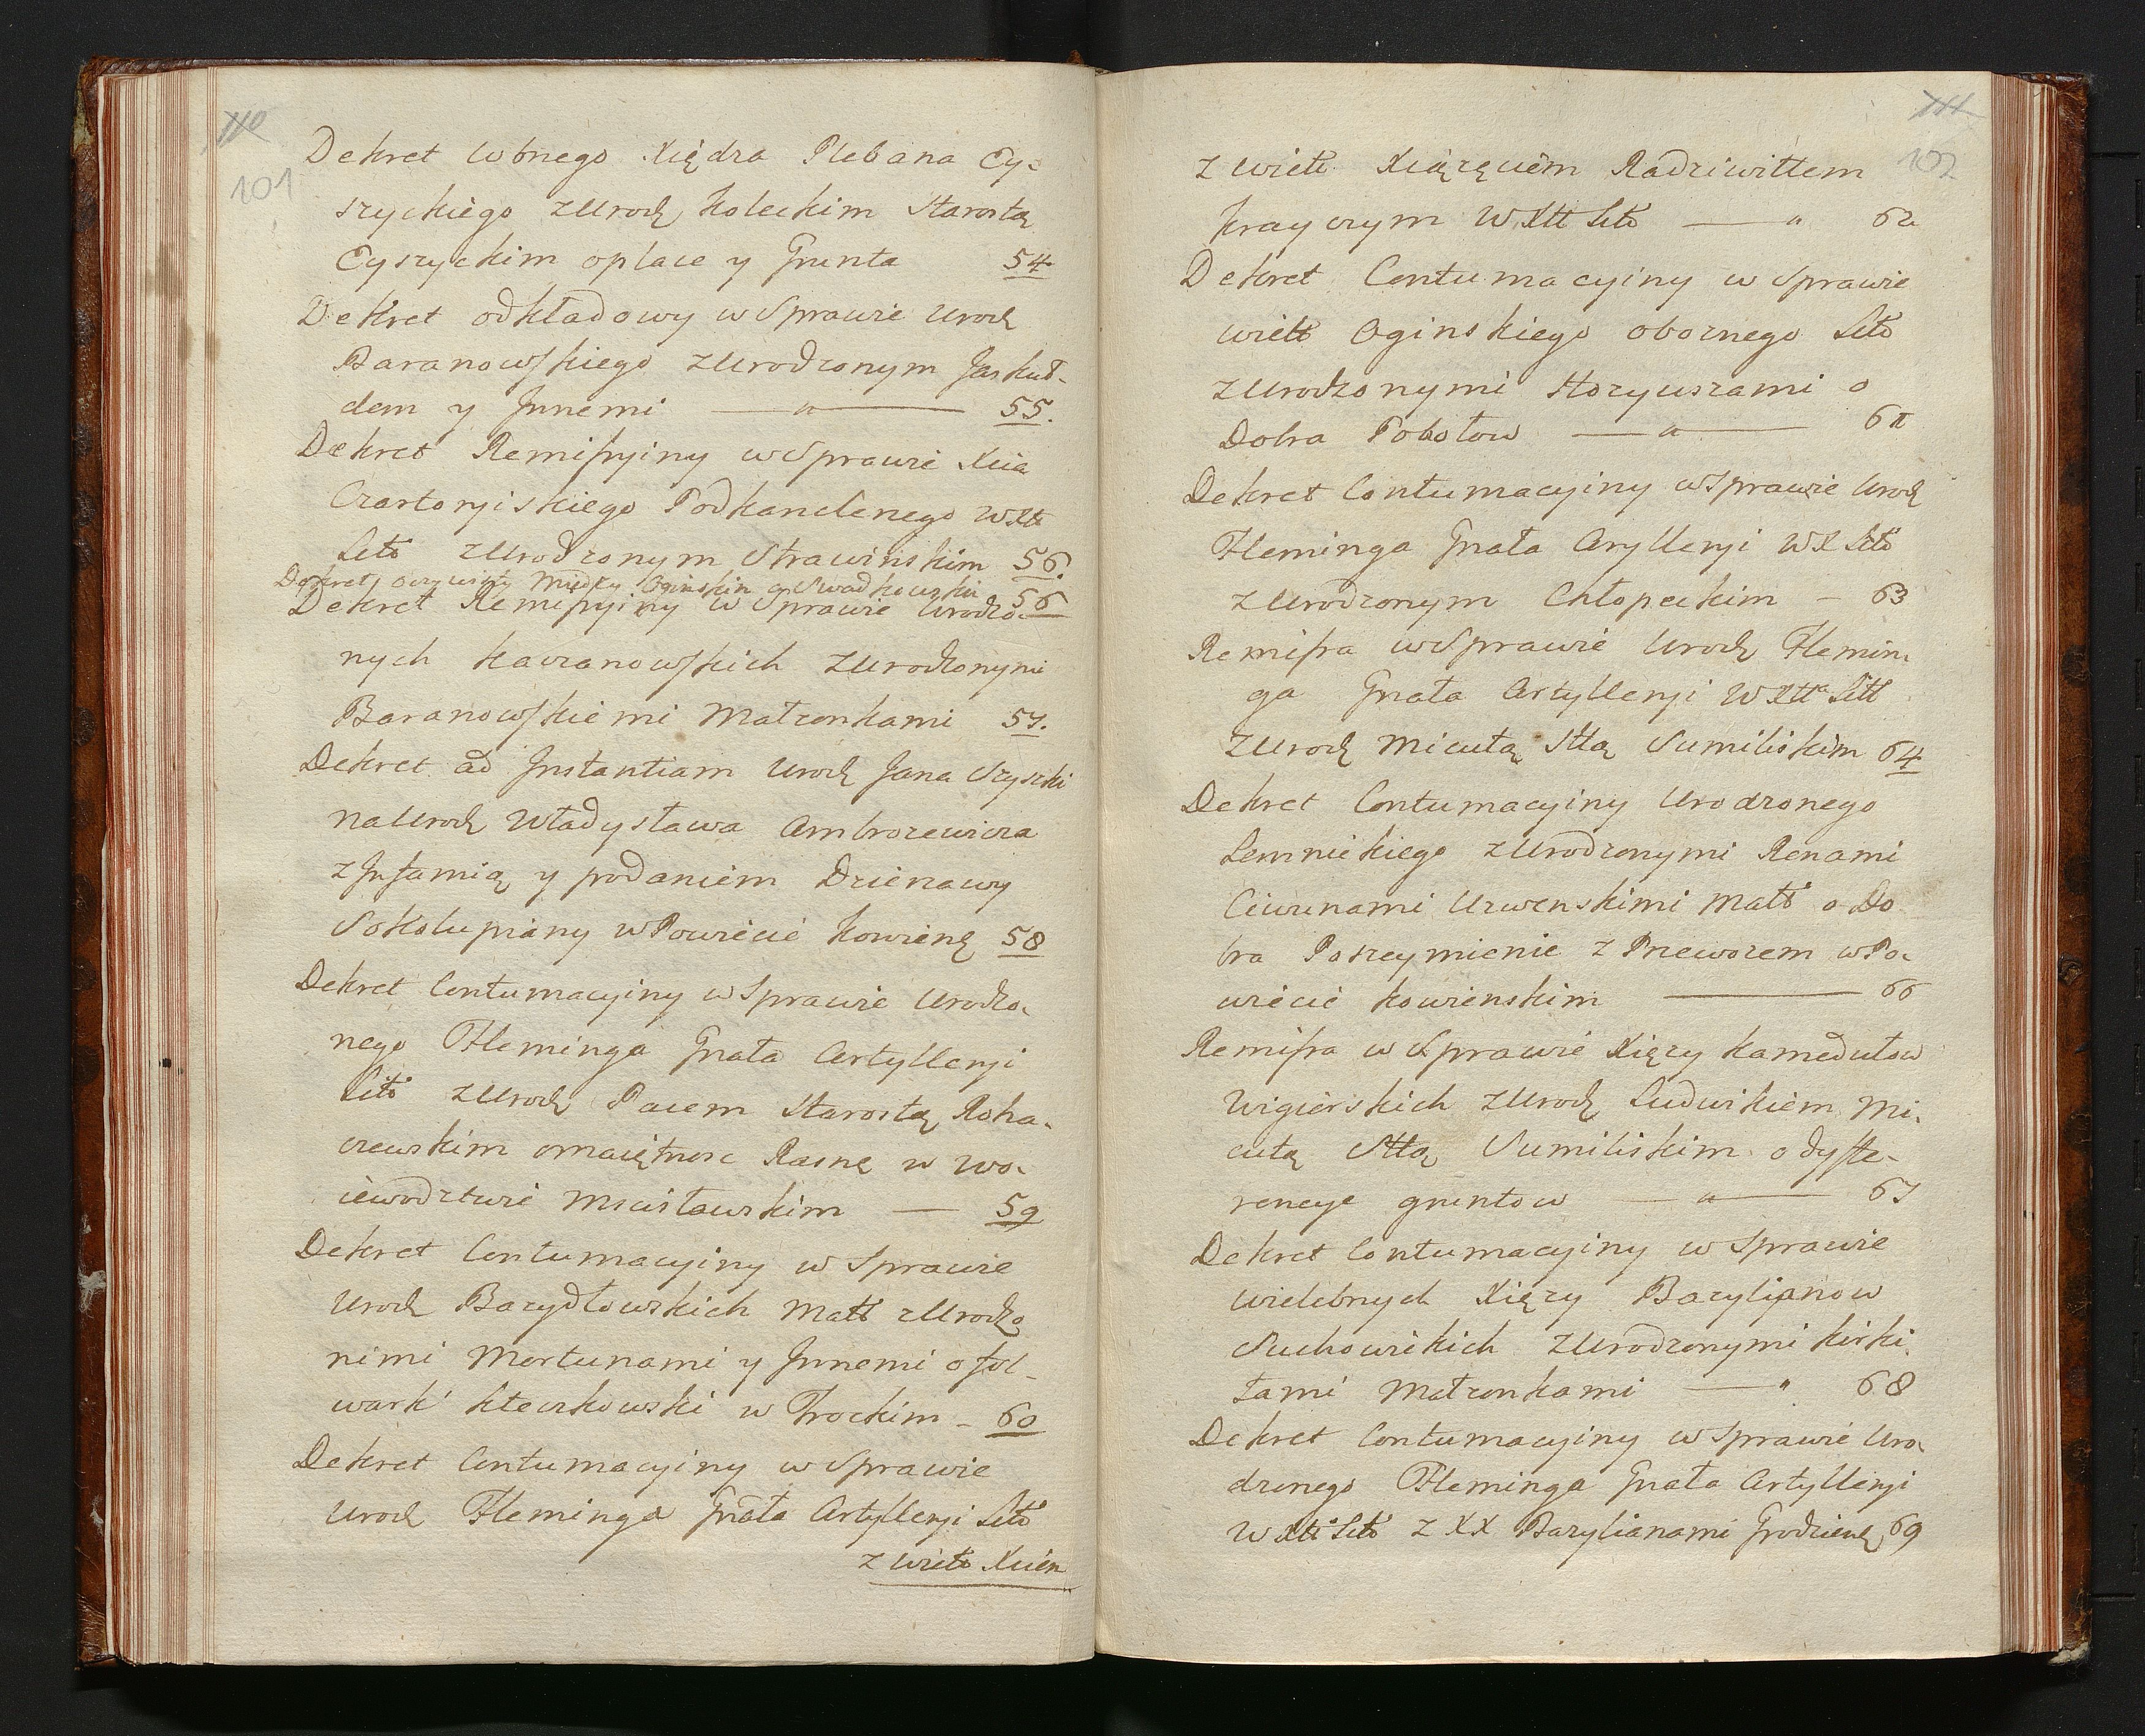 110
101
Dekret Wbnego Xiędza Plebana Cy-
szyckiego z Urodz Koleckim Starostą
Cyszyckim o place y Grunta 54
Dekret odkładowy w Sprawie Urodz
Baranowskiego z Urodzonym Jaskuł-
dem y Jnnemi 55.
Dekret Remissyiny w Sprawie Xcia
Czartoryiskiego Podkanclerzego WXtt
Litt z Urodzonym Strawińskim 56.
Dekret oczywisty między Oginskim a Swadkowski 56
Dekret Remissyiny w Sprawie Urodzo-
nych Kaczanowskich z Urodzonymi
Baranowskiemi Małzonkami 57.
Dekret ad Jnstantiam Urodz Jana Szyszki
na Urodz Władysława Ambrozewicza
z Jnfamią y podaniem Dzierzawy
Sokolupiany w Powiecie Kowieńs 58
Dekret Contumacyiny w Sprawie Urodzo-
nego Fleminga Gnała Artylleryi
Litt z Urodz Pacem Starostą Roha-
czewskim o maiętnosc Rasnę w Wo-
iewodztwie Mscisławskim 59
Dekret Contumacyiny w Sprawie
Urodz Bazydłowskich Małt z Urodzo
nimi Mortunami y Jnnemi o fol-
wark Kleczkowski w Trockim - 60
Dekret Contumacyiny w Sprawie
Urodz Fleminga Gnała Artylleryi Litt
z Wielt Xcien
111
102
z Wielt Xiązęciem Radziwiłłem
Krayczym WXtt Litt 62
Dekret Contumacyiny w Sprawie
Wielt Oginskiego oboznego Litt
z Urodzonymi Horyuszami o
Dobra Pobołow 61
Dekret Contumacyiny w Sprawie Urodz
Fleminga Gnała Arylleryi WX Litt
z Urodzonym Chłopeckim - 63
Remissa w Sprawie Urodz Flemin-
ga Gnała Artylleryi WXtt Litt
z Urodz Micutą Sttą Sumiliskim 64
Dekret Contumacyiny Urodzonego
Lemnickiego z Urodzonymi Renami
Ciwunami Uzwenskimi Małt o Do
bra Poszeymienie z Przewozem w Po-
wiecie Kowienskim 66
Remissa w Sprawie Xięzy Kamedułow
Wigierskich z Urodz Ludwikiem Mi-
cutą Sttą Sumiliskim o dyffe-
rencye gruntow 67
Dekret Contumacyiny w Sprawie
Wielebnych Xięzy Bazylianow
Suchowickich z Urodzonymi Kirki-
łami Małzonkami 68
Dekret Contumacyiny w Sprawie Uro-
dzonego Fleminga Gnała Artylleryi
WXtt Litt z XX Bazylianami Grodzieńs 69